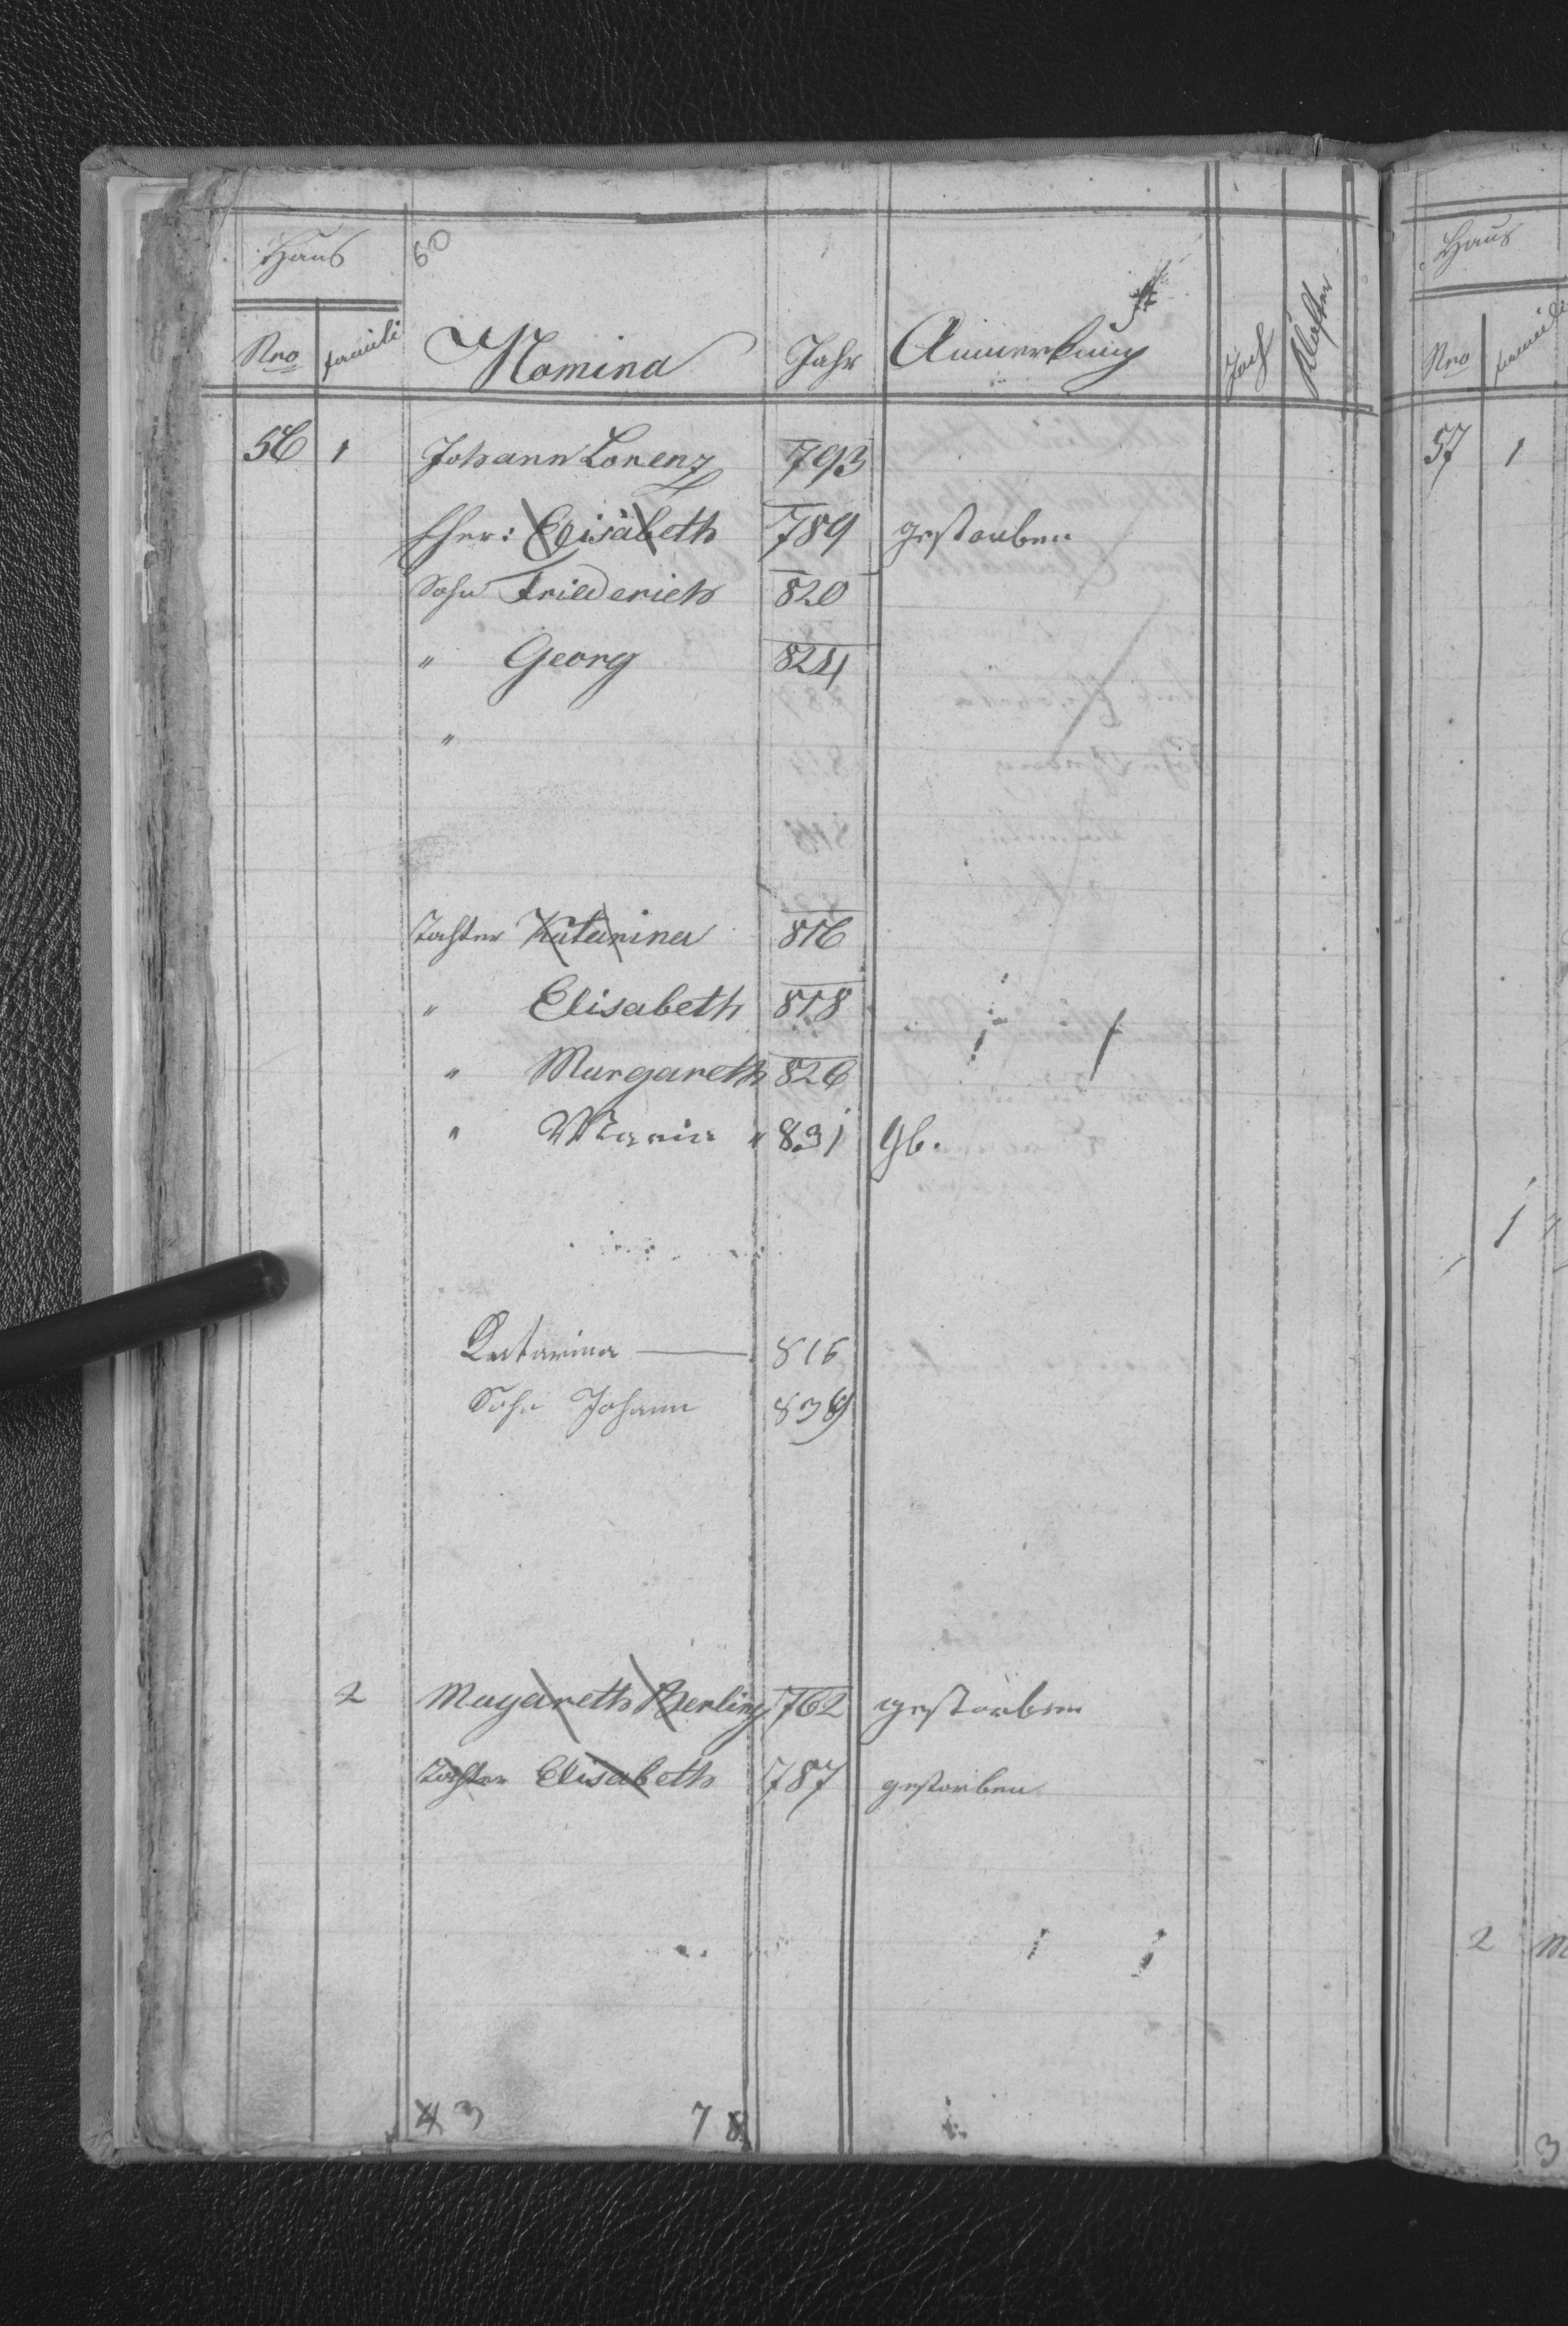 Haus 60
Nro famili Nomina Jahr Anmerkung Joch Klafter
56 1 Johann Lorenz 793
Eher: Elisabeth 789 gestorben
Sohn Friederich 820
" Georg 824
"
Tochter Katarina 816
" Elisabeth 818
" Margareth 826
" Maria " 831 Gb.
Catarina — 816
Sohn Johann 839
2 Magareth Berling 762 gestorben
Tochter Elisabeth 787 gestorben
4 3 7 8
Haus
Nro famili
57 1
1 "
2 M
3